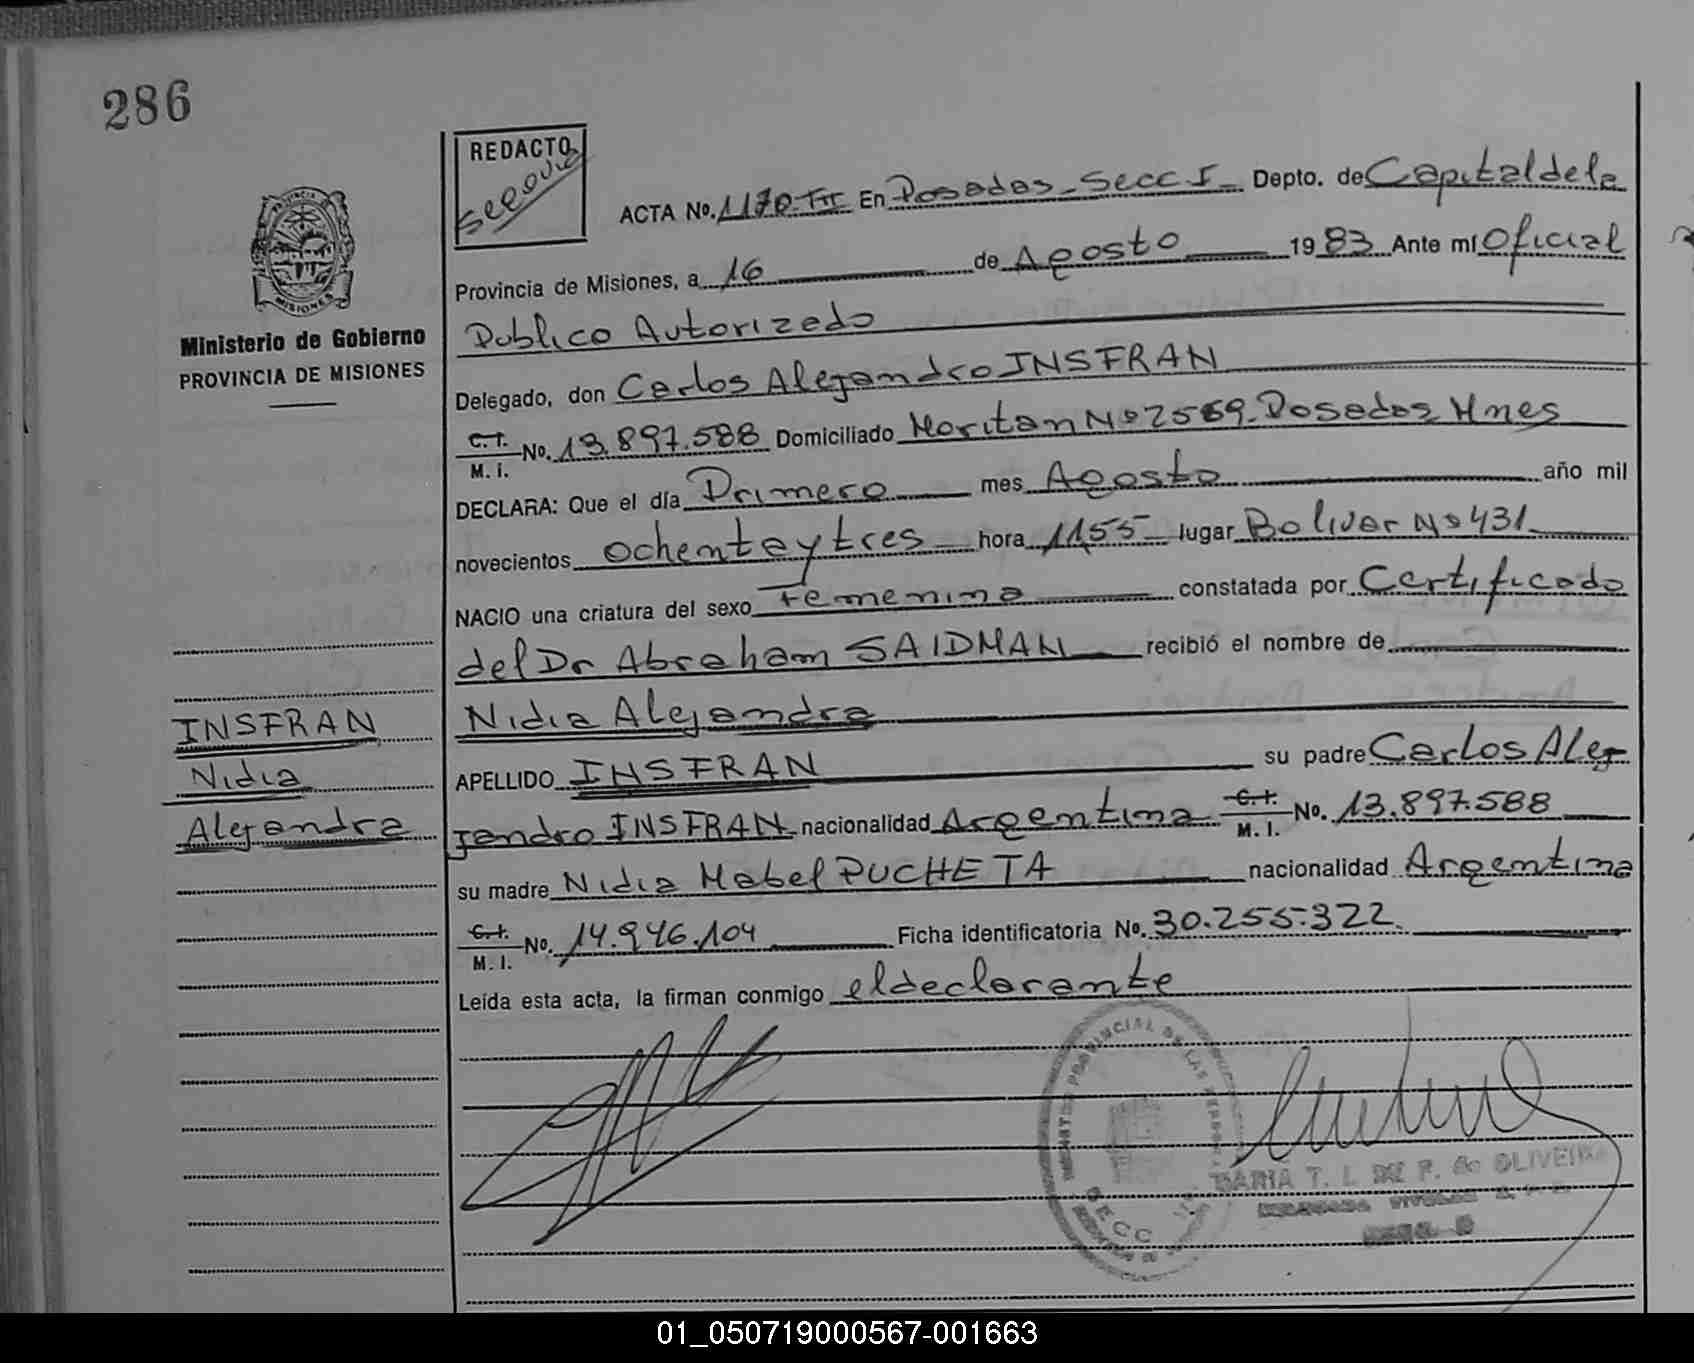 286
REDACTO
ACTA No. 1170-TII En Posadas - Secc I - Depto. de Capital de la
Provincia de Misiones, a 16 de Agosto 1983 Ante mí Oficial
Publico Autorizado
Ministerio de Gobierno
PROVINCIA DE MISIONES
Delegado, don Carlos Alejandro INSFRAN
C.I. M.I. No. 13.897.588 Domiciliado Moritan Nº 2569 - Posadas Mnes
DECLARA: Que el día Primero mes Agosto año mil
novecientos ochenta y tres hora 11,55 lugar Bolivar Nº 431
NACIO una criatura del sexo Femenina constatada por Certificado
del Dr Abraham SAIDMAN recibió el nombre de
Nidia Alejandra
INSFRAN
Nidia
Alejandra
APELLIDO INSFRAN su padre Carlos Alej
jandro INSFRAN nacionalidad Argentina C.I. M.I. No. 13.897.588
su madre Nidia Mabel PUCHETA nacionalidad Argentina
C.I. M.I. No. 14.946.104 Ficha identificatoria No. 30.255.322
Leída esta acta, la firman conmigo el declarante
PROVINCIAL DE LAS PERSONAS
SECC
MARIA T. I. DE P. de OLIVEIRA
01_050719000567-001663